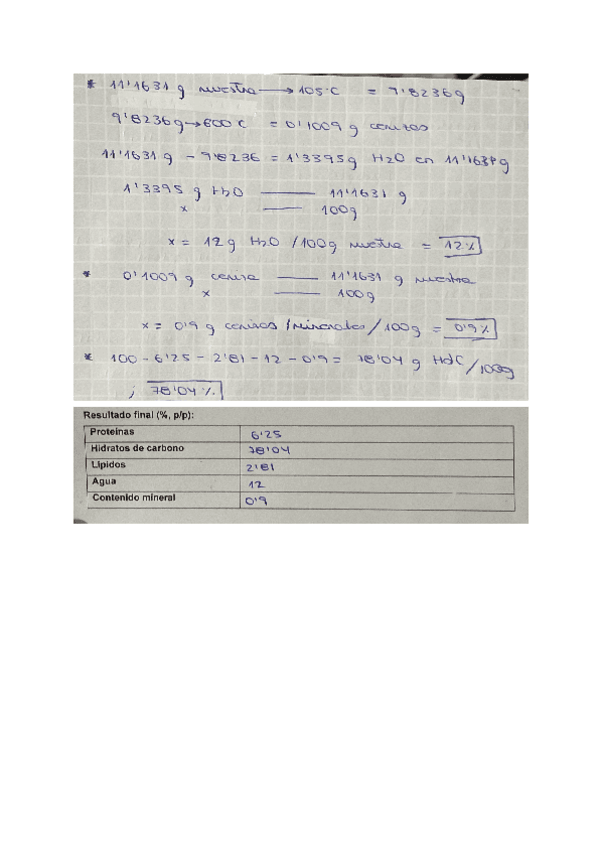 * 11'1631 g muestra → 105°C = 9'8236g
9'8236g → 600°C = 0'1009 g cenizas
11'1631 g - 9'8236 = 1'3395g H2O en 11'1631g
1'3395 g H2O —— 11'1631 g
x —— 100g
x = 12g H2O /100g muestra = 12%
* 0'1009 g ceniza —— 11'1631 g muestra
x —— 100g
x = 0'9 g cenizas/minerales/100g = 0'9%
* 100 - 6'25 - 2'81 - 12 - 0'9 = 78'04 g HdC/100g
; 78'04%
Resultado final (%, p/p):
Proteínas 6'25
Hidratos de carbono 78'04
Lípidos 2'81
Agua 12
Contenido mineral 0'9